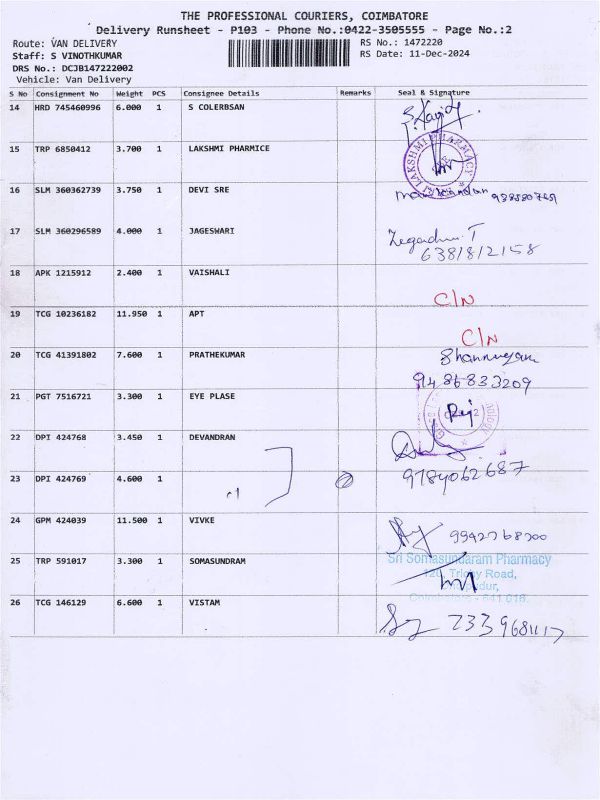 THE PROFESSIONAL COURIERS, COIMBATORE
Delivery Runsheet - P103 - Phone No.:0422-3505555 - Page No.:2
Route: VAN DELIVERY
RS No.: 1472220
Staff: S VINOTHKUMAR
RS Date: 11-Dec-2024
DRS No.: DCJB147222002
Vehicle: Van Delivery
S No Consignment No Weight PCS Consignee Details Remarks Seal & Signature
14 HRD 745460996 6.000 1 S COLERBSAN
15 TRP 6850412 3.700 1 LAKSHMI PHARMICE
16 SLM 360362739 3.750 1 DEVI SRE
17 SLM 360296589 4.000 1 JAGESWARI
6381812158
18 APK 1215912 2.400 1 VAISHALI
C/N
19 TCG 10236182 11.950 1 APT
C/N
20 TCG 41391802 7.600 1 PRATHEKUMAR
9486833209
21 PGT 7516721 3.300 1 EYE PLASE
22 DPI 424768 3.450 1 DEVANDRAN
23 DPI 424769 4.600 1
9789062687
24 GPM 424039 11.500 1 VIVKE
25 TRP 591017 3.300 1 SOMASUNDRAM
Sri Somasundaram Pharmacy
Road,
26 TCG 146129 6.600 1 VISTAM